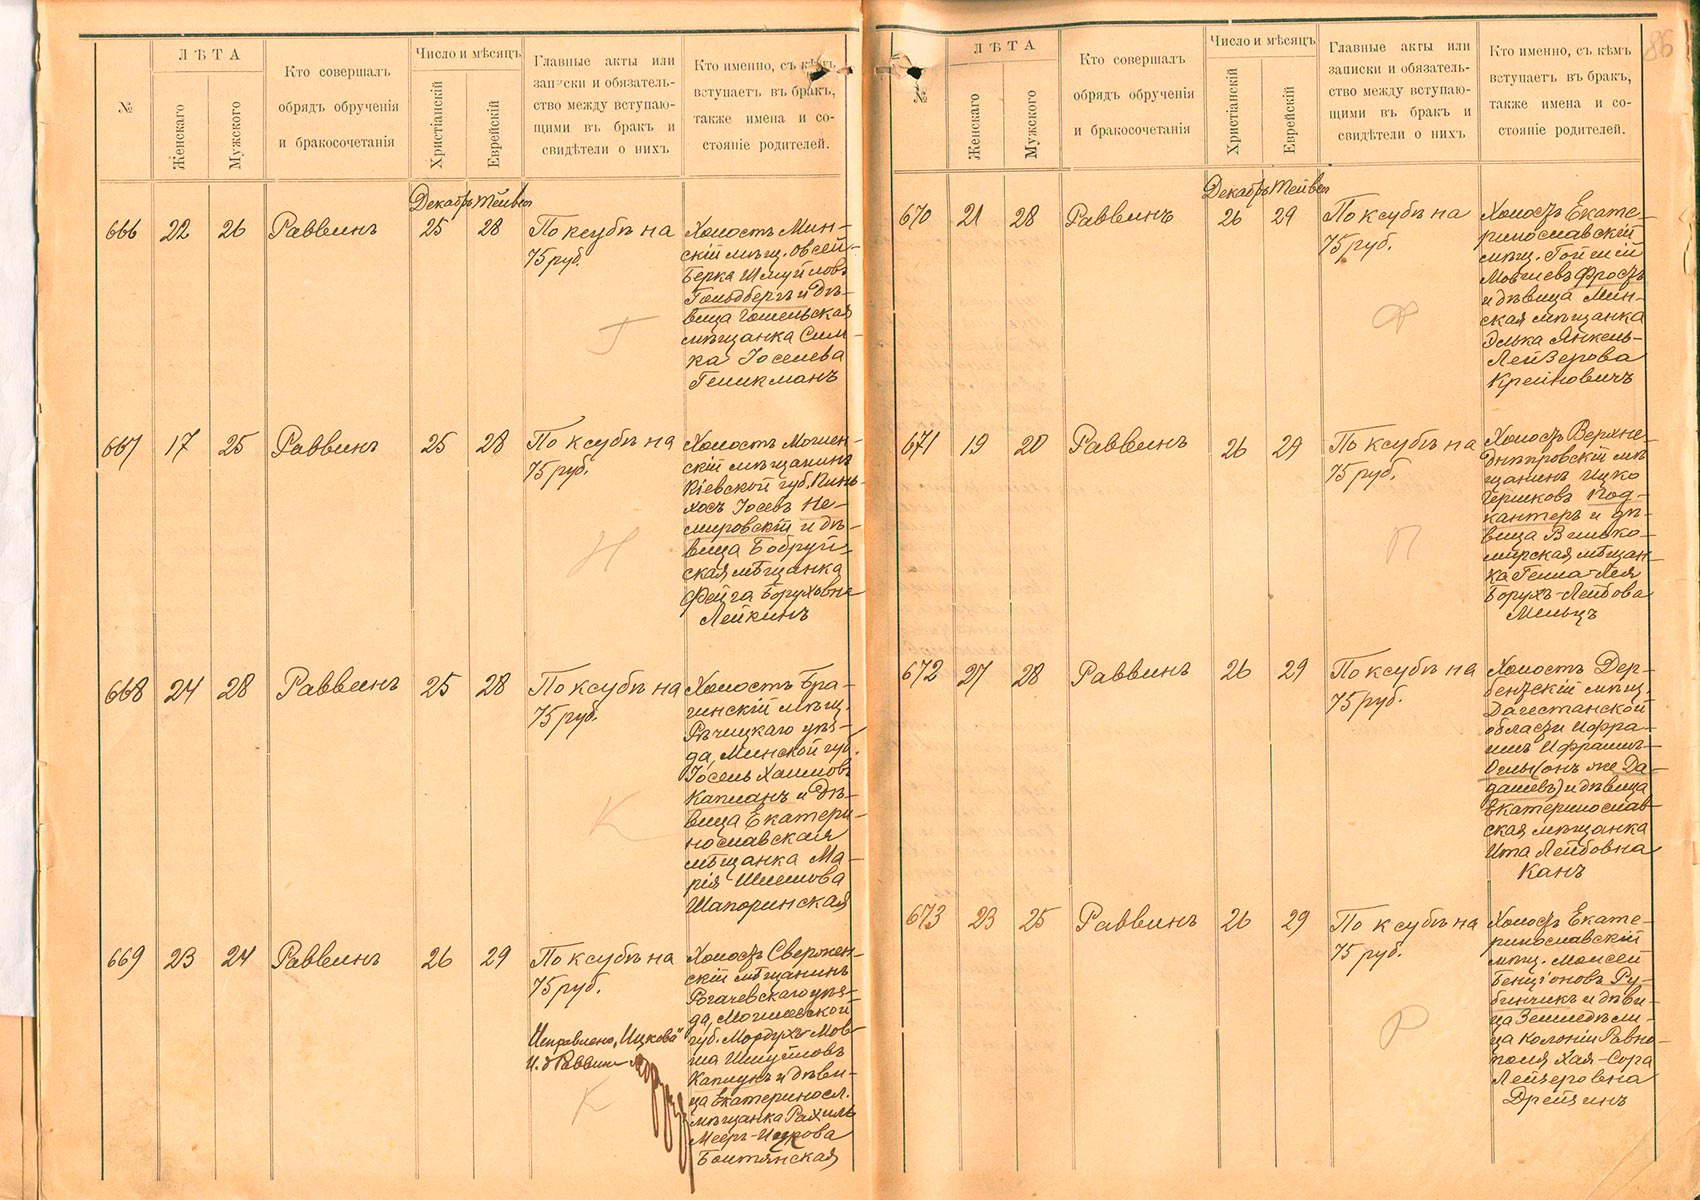 №
ЛѢТА
Женскаго
Мужского
Кто совершалъ
обрядъ обрученія
и бракосочетанія
Число и мѣсяцъ
Христіанскій
Еврейскій
Главные акты или
записки и обязатель-
ство между вступаю-
щими въ бракъ и
свидѣтели о нихъ
Кто именно, съ кѣмъ
вступаетъ въ бракъ,
также имена и со-
стояніе родителей.
Декабрь Тейвес
666 22 26 Раввинъ 25 28 По ксубѣ на
75 руб.
Холостъ Мин-
скій мѣщ. Овсей-
Берка Шмуйловъ
Гольдбергъ и дѣ-
вица Гомельская
мѣщанка Сим-
ка Іоселева
Геликманъ
Г
667 17 25 Раввинъ 25 28 По ксубѣ на
75 руб.
Холостъ
скій мѣщанинъ
Кіевской губ. Пинь-
хосъ Іосевъ Не-
мировскій и дѣ-
вица Бобруй-
ская мѣщанка
Фейга Боруховна
Лейкинъ
Н
668 24 28 Раввинъ 25 28 По ксубѣ на
75 руб.
Холостъ Бра-
гинскій мѣщ.
Рѣчицкаго уѣз-
да, Минской губ.
Іосель Хаимовъ
Капланъ и дѣ-
вица Екатери-
нославская
мѣщанка Ма-
рія Шлемова
Шапоринская
К
669 23 24 Раввинъ 26 29 По ксубѣ на
75 руб.
Исправлено „Ицкова"
И. д Раввина
Холостъ Свержен-
скій мѣщанинъ
Рогачевскаго уѣз-
да, Могилевской
губ. Мордухъ-Мов-
ша Шмуйловъ
Каплунъ и дѣви-
ца Екатериносл.
мѣщанка Рахиль
Мееръ-Ицкова
Болтянская
К
86
№
ЛѢТА
Женскаго
Мужского
Кто совершалъ
обрядъ обрученія
и бракосочетанія
Число и мѣсяцъ
Христіанскій
Еврейскій
Главные акты или
записки и обязатель-
ство между вступаю-
щими въ бракъ и
свидѣтели о нихъ
Кто именно, съ кѣмъ
вступаетъ въ бракъ,
также имена и со-
стояніе родителей.
Декабрь Тейвес
670 21 28 Раввинъ 26 29 По ксубѣ на
75 руб.
Холостъ Екате-
ринославскій
мѣщ.
Мовшевъ Фростъ
и дѣвица Мин-
ская мѣщанка
Элька Янкель-
Лейзерова
Крейновичъ
Ф
671 19 20 Раввинъ 26 29 По ксубѣ на
75 руб.
Холостъ Верхне-
днѣпровскій мѣ-
щанинъ Ицко
Гершковъ Под-
кантеръ и дѣ-
вица Вилько-
мирская мѣщан-
ка Гепла-Лея
Борухъ-Лейбова
Мельцъ
П
672 27 28 Раввинъ 26 29 По ксубѣ на
75 руб.
Холостъ Дер-
бентскій мѣщ.
Дагестанской
области Ифра-
имъ Ифраимъ-
Оглы (онъ же Да-
дашевъ) и дѣвица
Екатеринослав-
ская мѣщанка
Ита Лейбовна
Канъ
673 23 25 Раввинъ 26 29 По ксубѣ на
75 руб.
Холостъ Екате-
ринославскій
мѣщ. Моисей
Бенціоновъ Ру-
бинчикъ и дѣви-
ца Земледѣли-
ца колоніи Равно-
поля Хая-Сора
Лейзеровна
Дрейзинъ
Р